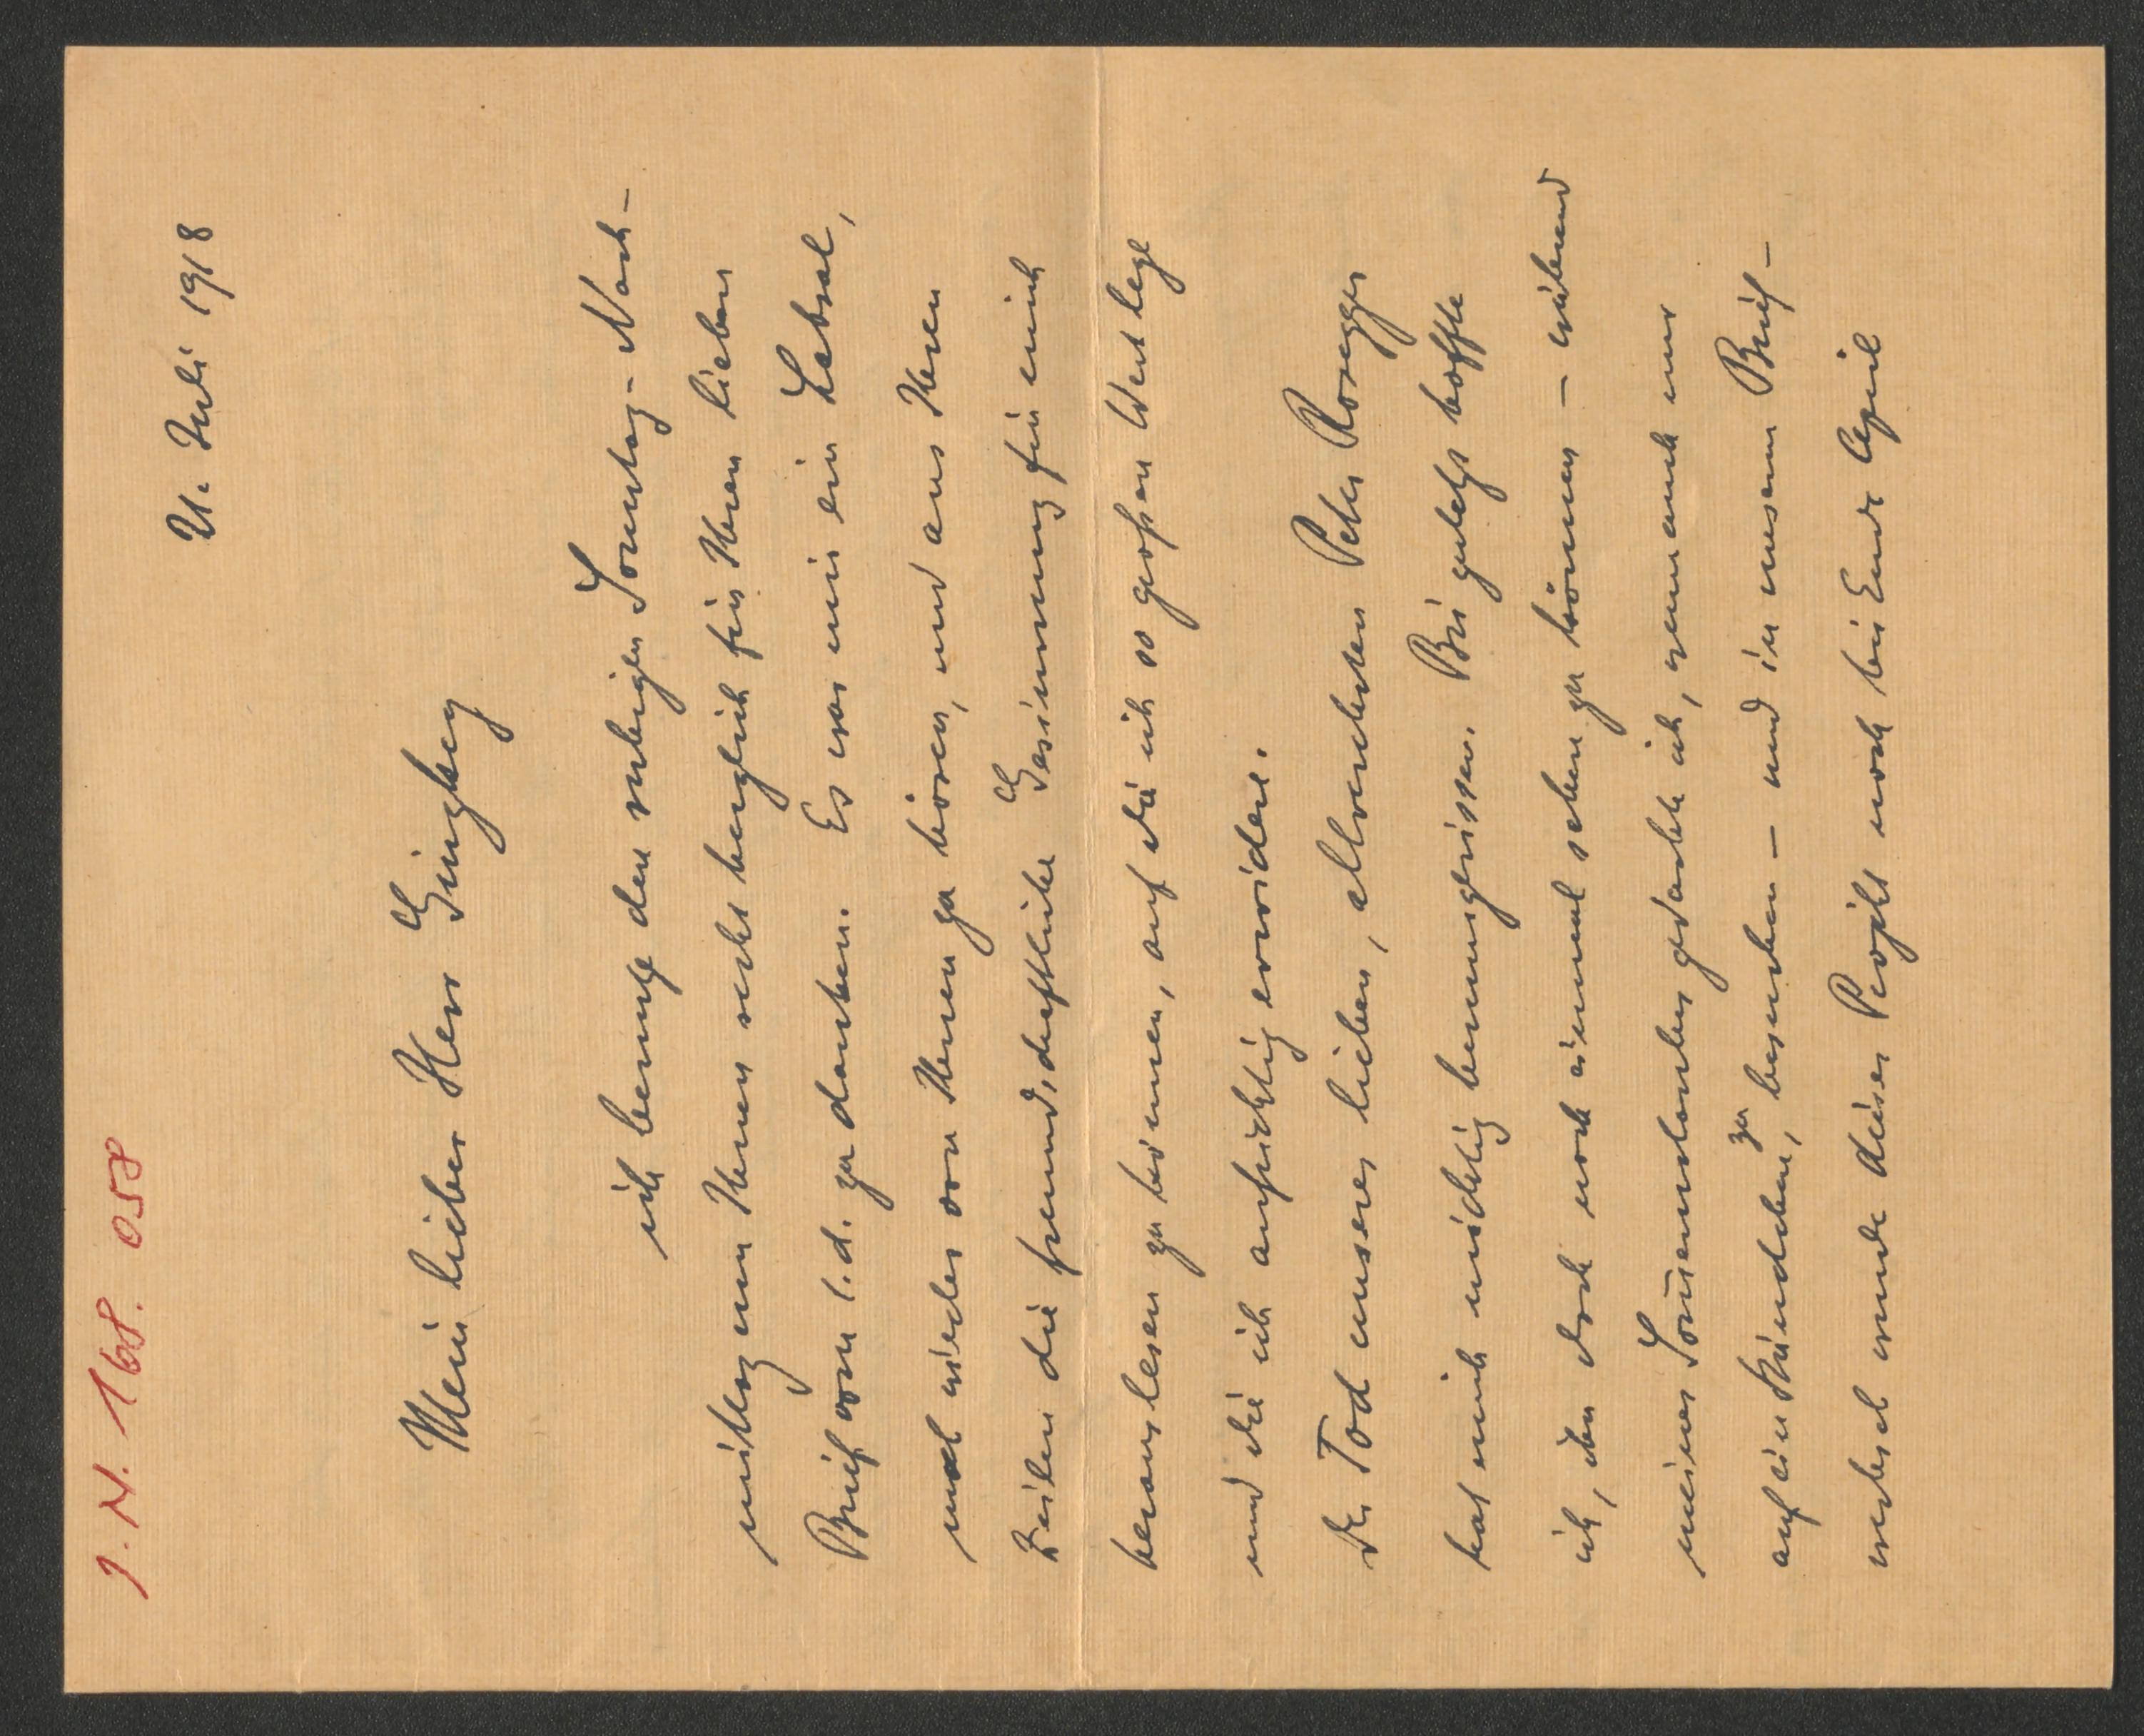 J. N. 168.058
21. Juli 1918
Mein lieber Herr Ginzkey
ich benutze den ruhigen Sonntag-Nach-
mittag um Ihnen recht herzlich für Ihren lieben
Brief vom 1. d. zu danken. Es war mir ein Labsal,
mal wieder von Ihnen zu hören, und aus Ihren
Zeilen die freundschaftliche Gesinnung für mich
herauslesen zu können, auf die ich so großen Wert lege
und die ich aufrichtig erwidere.
Der Tod unseres lieben, altverehrten Peter Rosegger
hat mich mächtig hernumgerissen. Bis zuletzt hoffte
ich, ihn doch noch einmal sehen zu können – während
meines Sommerurlaubes gedachte ich, wenn auch nur
auf ein Stündchen, zu besuchen – und in unserem Brief-
wechsel wurde dieses Projekt noch bis Ende April